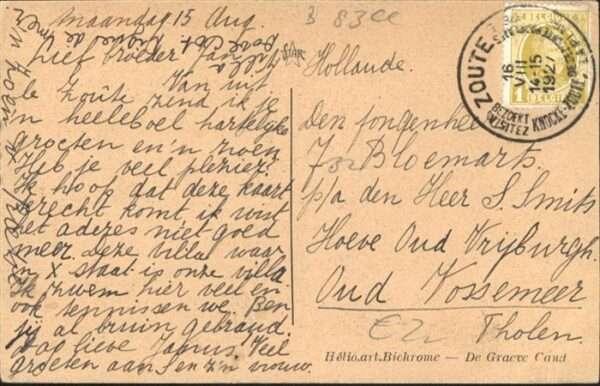 Maandag 15 Aug.
Lief broeder Jan
Van uit
le Zoute zind ik je
'n heeleboel hartelijke
groeten en 'n zoen
Heb je veel plezier?
Ik hoop dat deze kaart
terecht komt ik wist
het adres niet goed
meer. Deze villa waar
'n x staat is onze villa
Ik zwem hier veel en
ook tennissen we. Ben
jij al bruin gebrand.
Dag lieve Janus Veel
groeten aan S en z'n vrouw.
B 83cc
Hollande.
Den jongenheer
J. Bloemarts.
p/a den Heer S. Smits
Hoeve Oud Vrijburgh.
Oud Vossemeer
Tholen.
€2,
ZOUTE
16
VIII
14-15
1927
BEZOEKT
VISITEZ KNOCKE-ZOUTE
1F
Hélio.art.Bichrome — De Graeve Gand